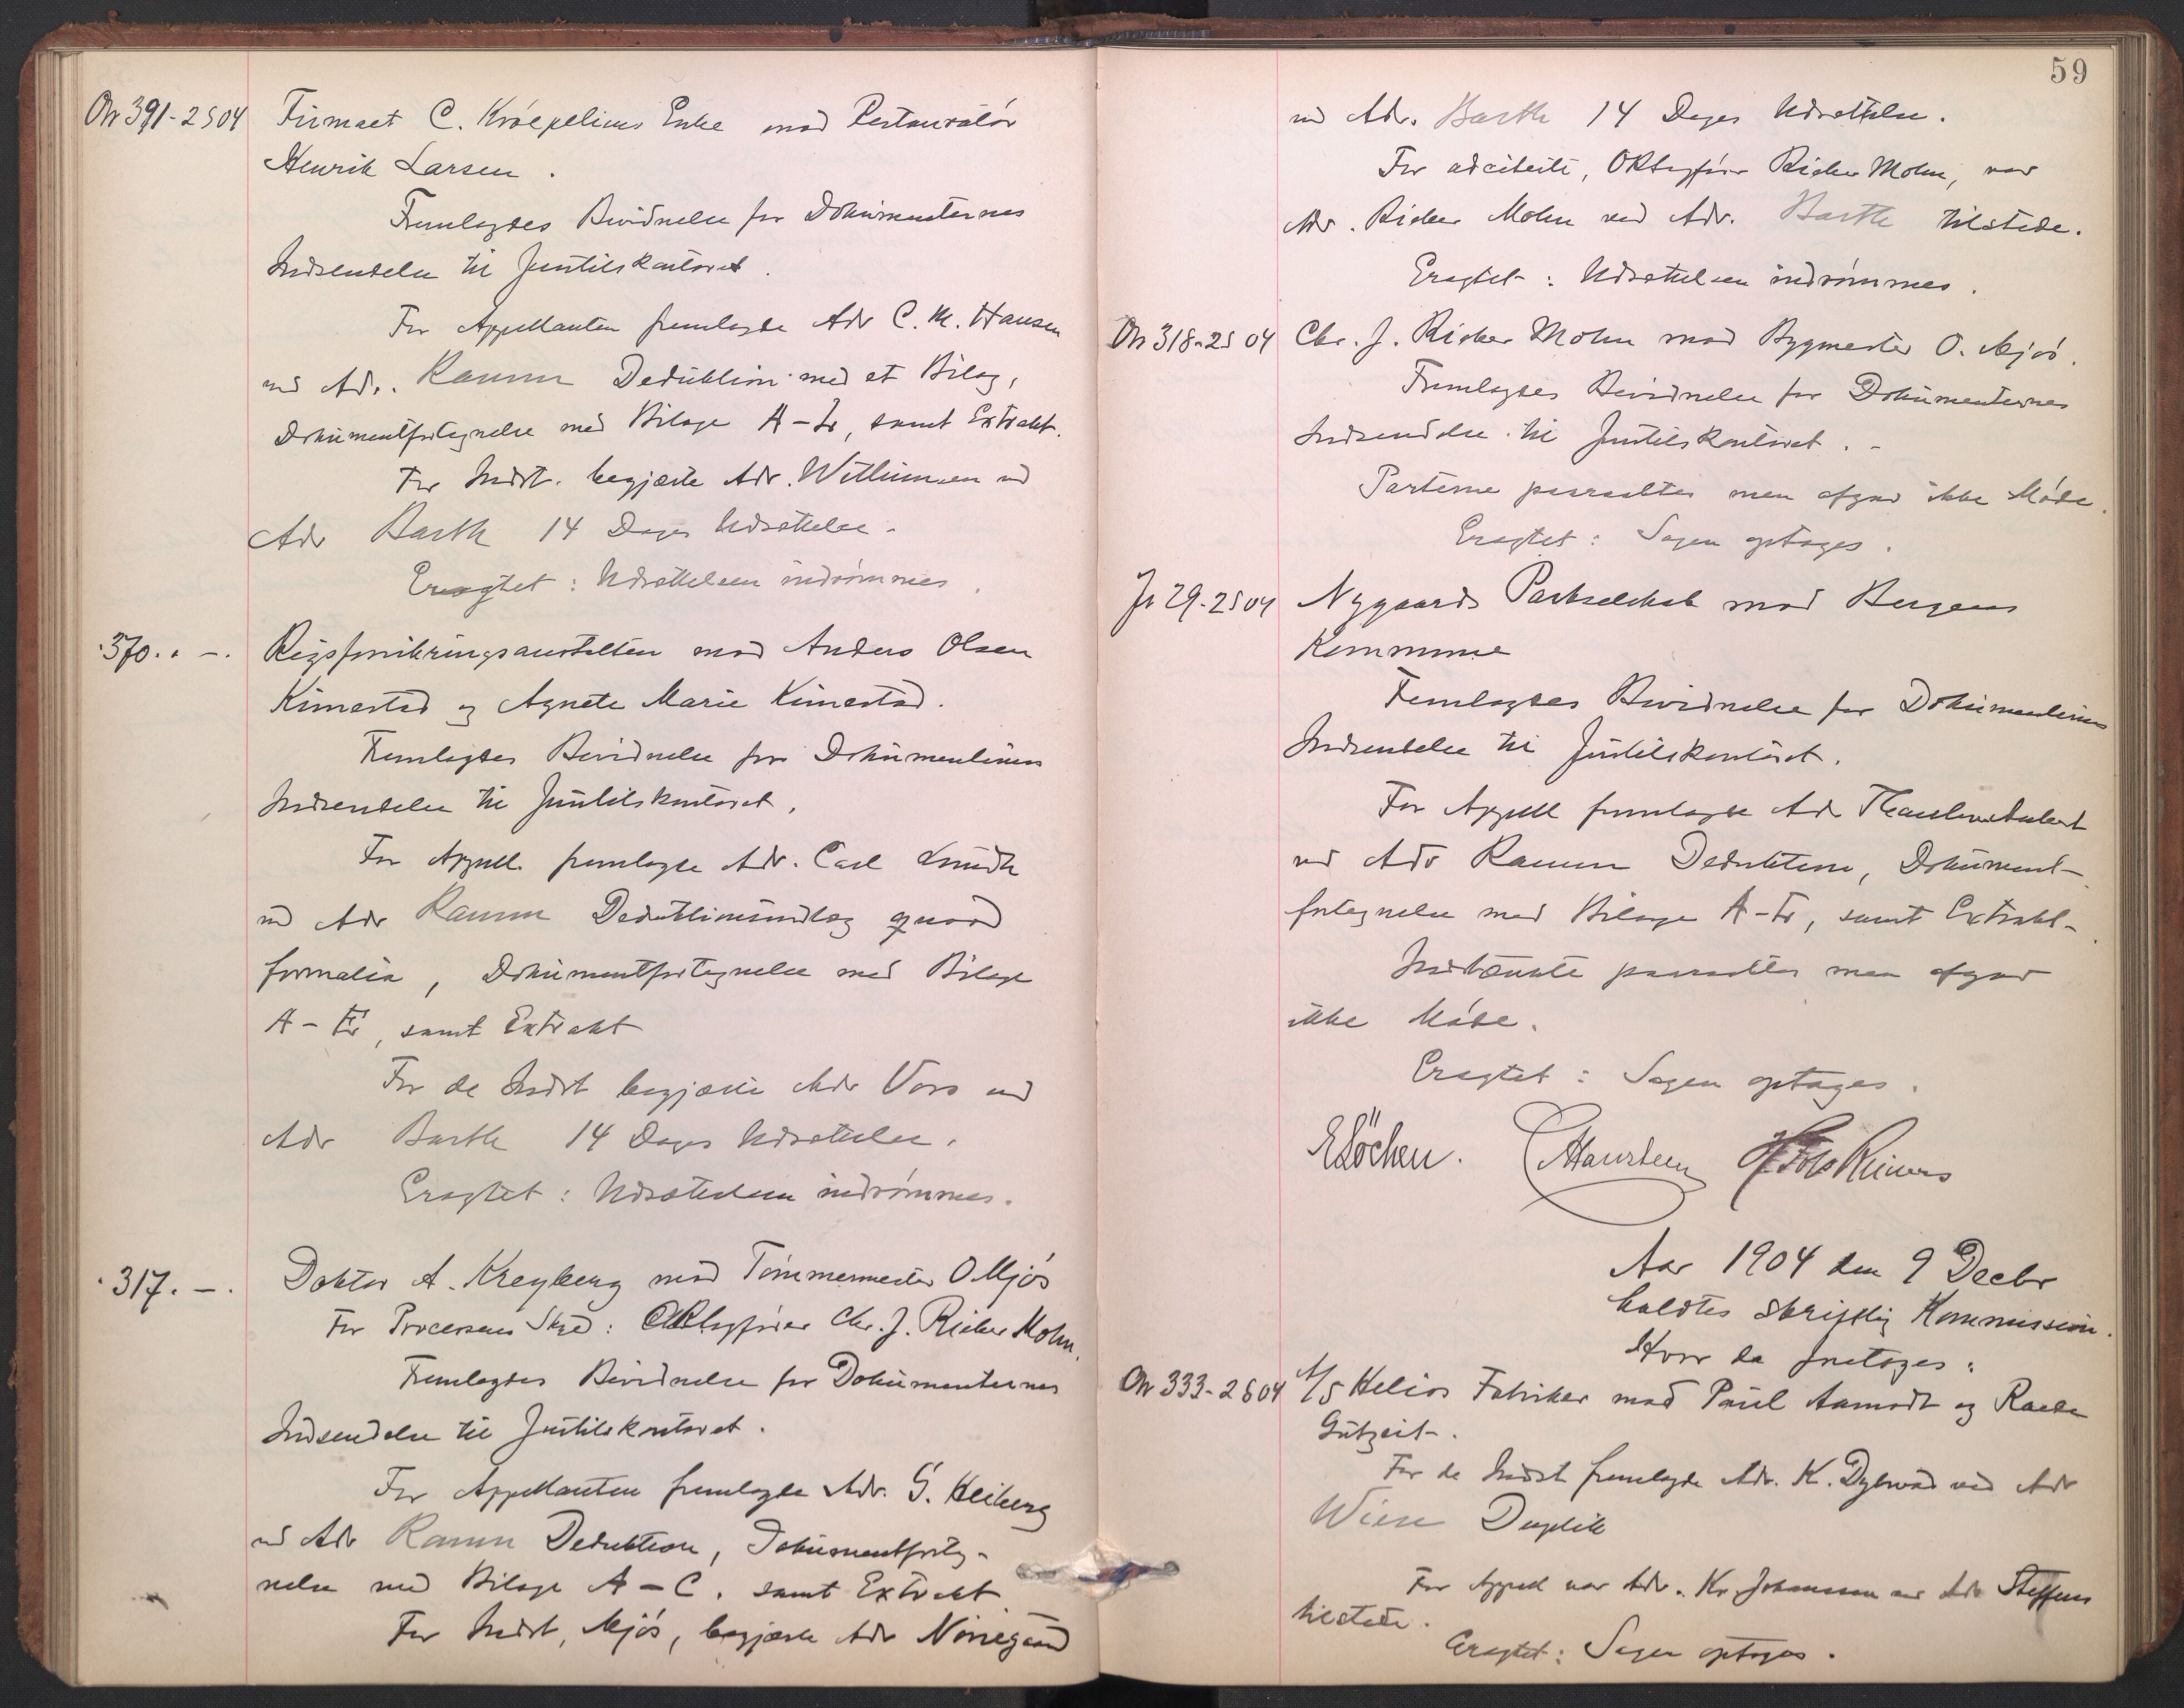 On 391-2 S 04 Firmaet C. Kröepelins Enke mod Restauratör
Henrik Larsen.
Fremlagdes Bevidnelse for Dokumenternes
Indsendelse til Justitskontoret.
For Appellanten fremlagde Adv C. M. Hansen
ved Adv. Ramm Deduktion med et Bilag,
Dokumentfortegnelse med Bilage A-L, samt Extrakt.
For Indst. begjærte Adv. Willumsen ved
Adv Barth 14 Dages Udsættelse.
Eragtet: Udsættelsen indrömmes.
370. " -. Rigsforsikringsanstalten mod Anders Olsen
Kimestad og Agnete Marie Kimestad.
Fremlagdes Bevidnelse for Dokumenternes
Indsendelse til Justitskontoret.
For Appell. fremlagde Adv. Carl Lundh
ved Adv Ramm Deduktionsindlæg quoad
formalia, Dokumentfortegnelse med Bilage
A-E, samt Extrakt
For de Indst begjærte Adv Voss ved
Adv Barth 14 Dages Udsættelse.
Eragtet: Udsættelsen indrömmes.
317. -. Doktor A. Kreyberg mod Tömmermester O Mjös
For Processens Skyld: ORsagförer Chr. J. Rieber Mohn.
Fremlagdes Bevidnelse for Dokumenternes
Indsendelse til Justitskontoret.
For Appellanten fremlagde Adv. G. Heiberg
ved Adv Ramm Deduktion, Dokumentforteg-
nelse med Bilage A-C, samt Extrakt
For Indst, Mjös, begjærte Adv Nörregaard
59
ved Adv. Barth 14 Dages Udsættelse.
For adciterte, ORsagförer Rieber Mohn, var
Adv. Rieber Mohn ved Adv. Barth tilstede.
Eragtet: Udsættelsen indrömmes.
On 318-2 S 04 Chr. J. Rieber Mohn mod Bygmester O. Mjös.
Fremlagdes Bevidnelse for Dokumenternes
Indsendelse til Justitskontoret. -
Parterne paaraabtes men afgav ikke Möde.
Eragtet: Sagen optages.
Js 29-2 S 04 Nygaards Parkselskab mod Bergens
Kommune
Fremlagdes Bevidnelse for Dokumenternes
Indsendelse til Justitskontoret.
For Appell fremlagde Adv
ved Adv Ramm Deduktion, Dokument-
fortegnelse med Bilage A-E, samt Extrakt-
Indstævnte paaraabtes men afgav
ikke Möde.
Eragtet: Sagen optages.
E Löchen. C Hansteen Reimers
Aar 1904 den 9 Decbr
holdtes skriftlig Kommission.
Hvor da foretoges:
On 333-2 S 04 A/S Helios Fabriker mod Paul Aamodt og Raeder
Gutzeit.
For de Indst fremlagde Adv. K. Dybwad ved Adv
Wiese Duplik
For Appell var Adv. Kr. Johanssen ved Adv Steffens
tilstede.
Eragtet: Sagen optages.